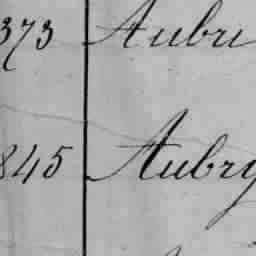 373 Aubri
845 Aubry